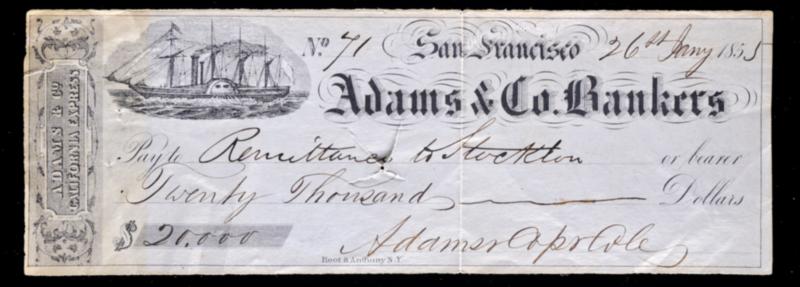 ADAMS & Co.
CALIFORNIA EXPRESS
No. 71 San Francisco 26st Jany 1855
Adams & Co. Bankers
Pay to Remittance to Stockton or bearer
Twenty Thousand Dollars
$ 20.000
Adams & Co pr Cole
Root & Anthony N.Y.